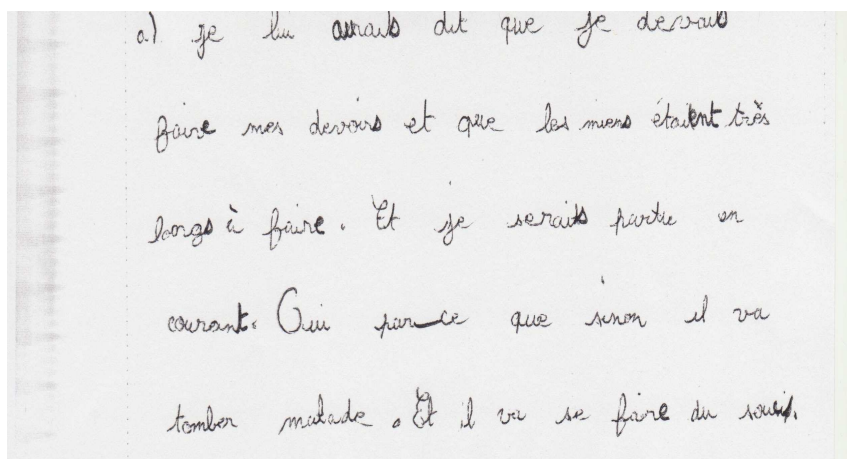 a.) je lui aurais dit que je devais
faire mes devoirs et que les miens étaient très
longs à faire. Et je serais partie en
courant. Oui par ce que sinon il va
tomber malade. Et il va se faire du soucis.